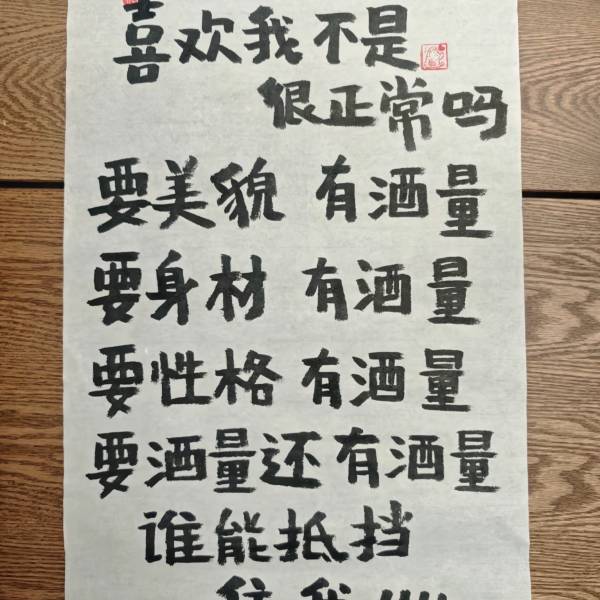 喜欢我不是
很正常吗
要美貌 有酒量
要身材 有酒量
要性格 有酒量
要酒量还有酒量
谁能抵挡
住我!!!!